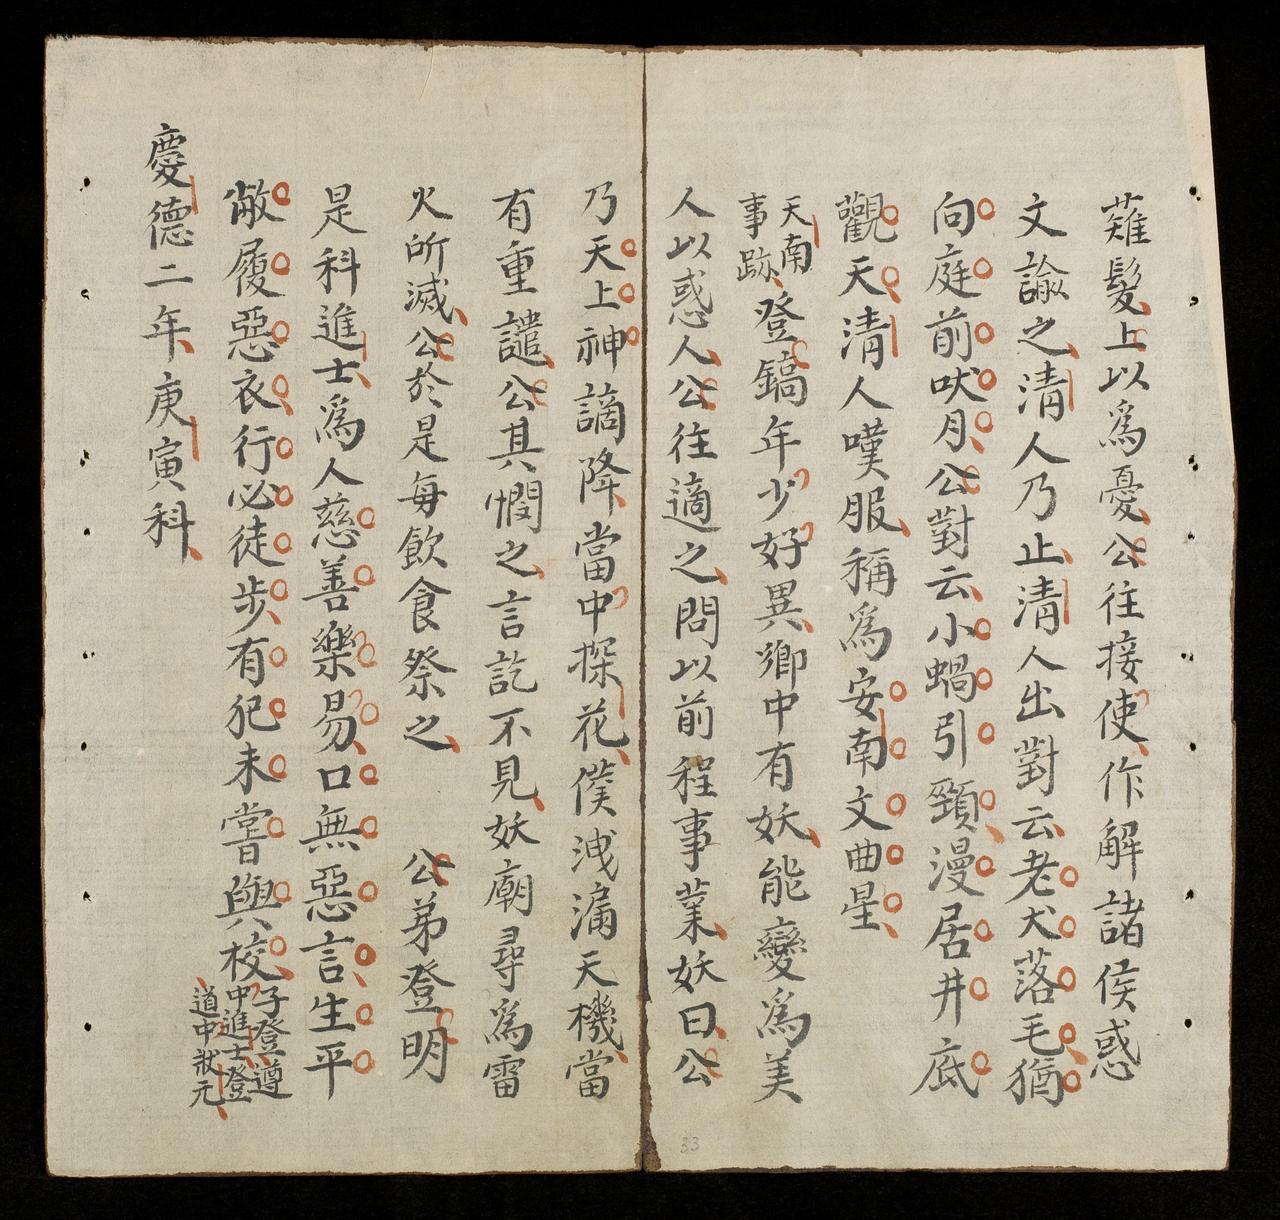 薙髮上以爲憂公往接使作解諸侯惑
文諭之清人乃止清人出對云老犬落毛猶
向庭前吠月公對云小蝸引頸漫居井底
觀天清人嘆服稱爲安南文曲星
天南
事跡
登鎬年少好異鄉中有妖能變爲美
人以惑人公往適之問以前程事業妖曰公
乃天上神謫降當中探花僕洩漏天機當
有重譴公其憫之言訖不見妖廟尋爲雷
火所滅公於是每飲食祭之 公弟登明
是科進士爲人慈善樂易口無惡言生平
敝履惡衣行必徒步有犯未嘗與校
子登遵
中進士登
道中狀元
慶德二年庚寅科
33